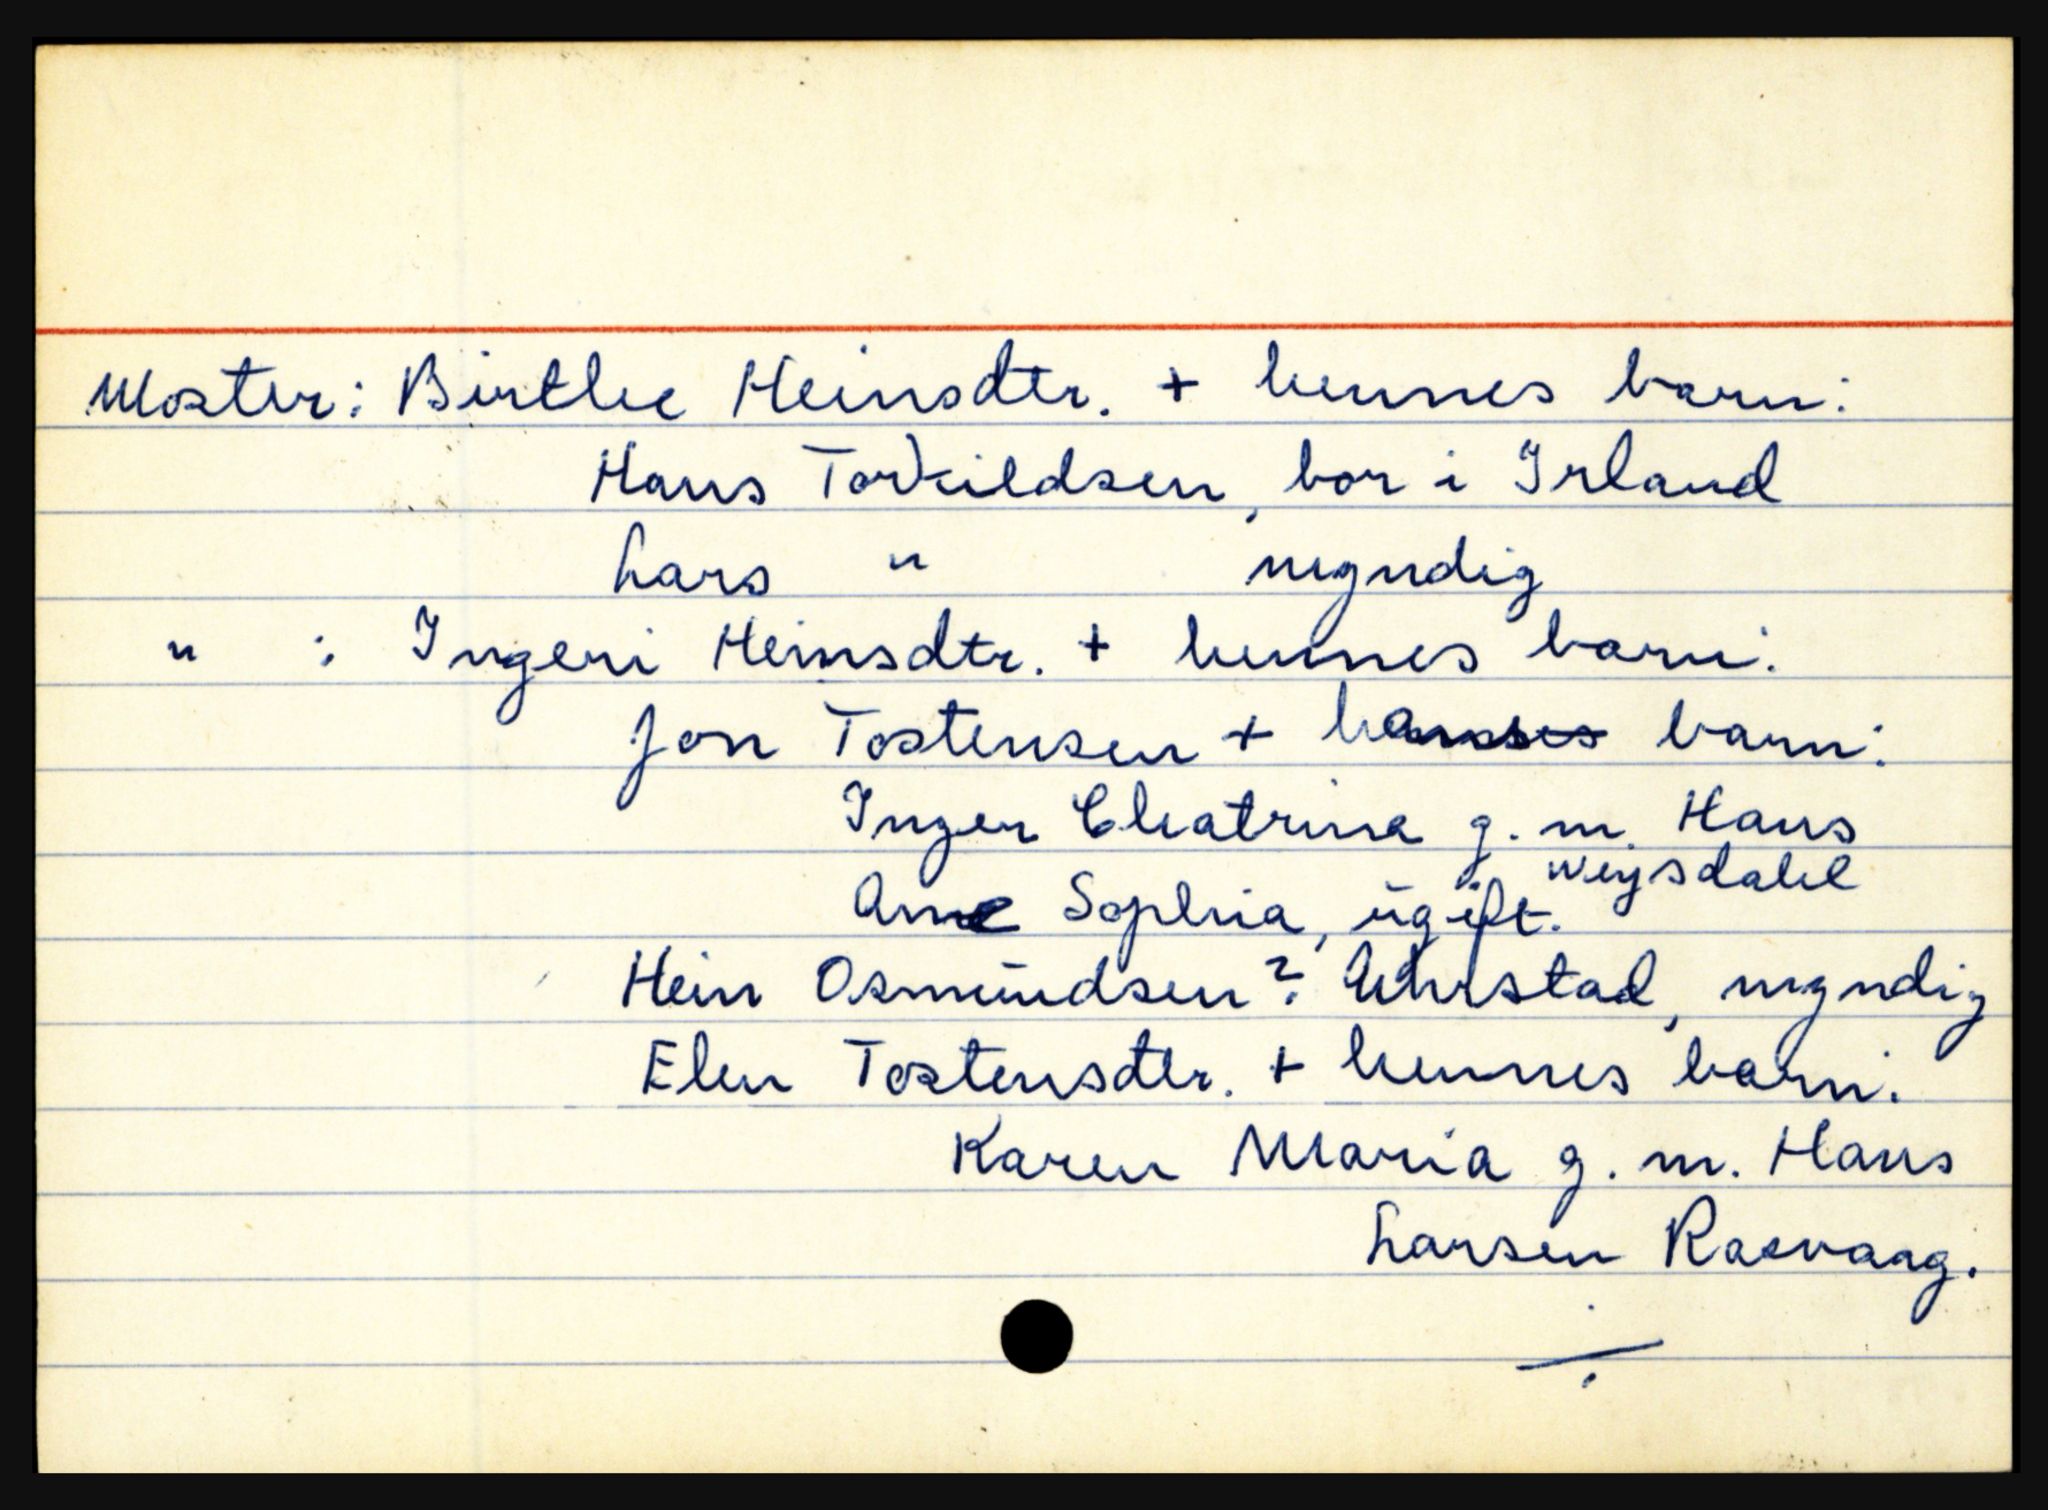 Moster: Birthe Heinsdtr. + hennes barn:
Hans Torkildsen, bor i Irland
Lars " myndig
" : Ingeri Heinsdtr. + hennes barn:
Jon Tostensen + hanses barn:
Inger Chatrine g. m. Hans
Weysdahl
Ane Sophia, ugift.
Hein Osmundsen? Århstad, myndig
Elen Tostensdtr. + hennes barn:
Karen Maria g. m. Hans
Larsen Rasvaag.